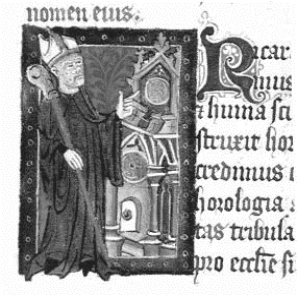 nomen eius.
Ricar
mus
& huma sci
struxit hor
credimus
horologia
tas tribula
pro ecclie si